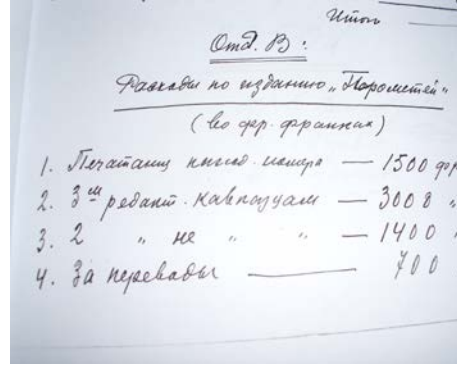 Итого
Отд. В:
Расходы по изданию „Порометей"
(во фр. франках)
1. Печатание номера — 1500 фр
2. 3-м редакт. кавказцам — 3000 "
3. 2 " не " " — 1400 "
4. За переводы — 700